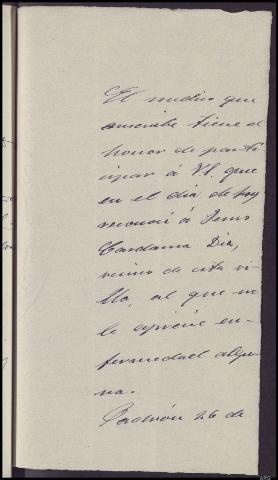 El medico que
suscribe tiene el
honor de parti
cipar á V.S. que
en el dia de hoy
reconoci á Jesus
Cardama Dia,
vecino de esta vi
lla, al que no
le aprecié en-
fermedad algu-
na.
Padrón 26 de